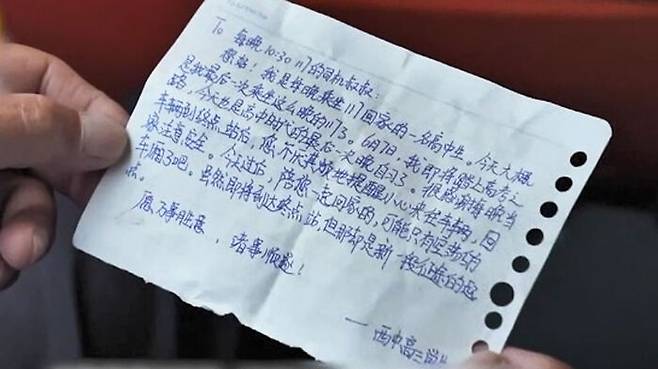 To 每晚10:30 111的司机叔叔:
您好!我是每晚乘坐111回家的一名高中生。今天大概
是我最后一次乘坐这么晚的111了。6月7日,我即将踏上高考之
路,今天也是高中时代的最后一天晚自习。很感谢每晚当
车辆到终点站后,您不厌其烦地提醒小心来往车辆,回
家注意安全。今天过后,陪您一起回家的,可能只有空荡的
车厢了吧。虽然即将到达终点站,但那却是新一段征途的起
点。
愿万事胜意,诸事顺遂!
——西中高三